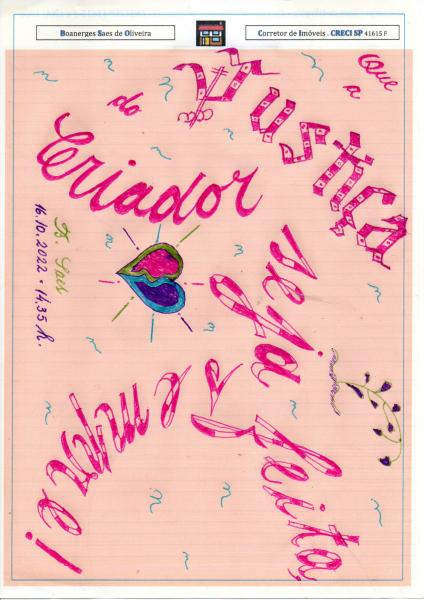 Boanerges Saes de Oliveira
Corretor de Imóveis . CRECI SP 41615 F
Que
a
Justiça
do
Criador
seja
feita,
sempre!
B. Saes
16.10.2022 • 14.35 h.